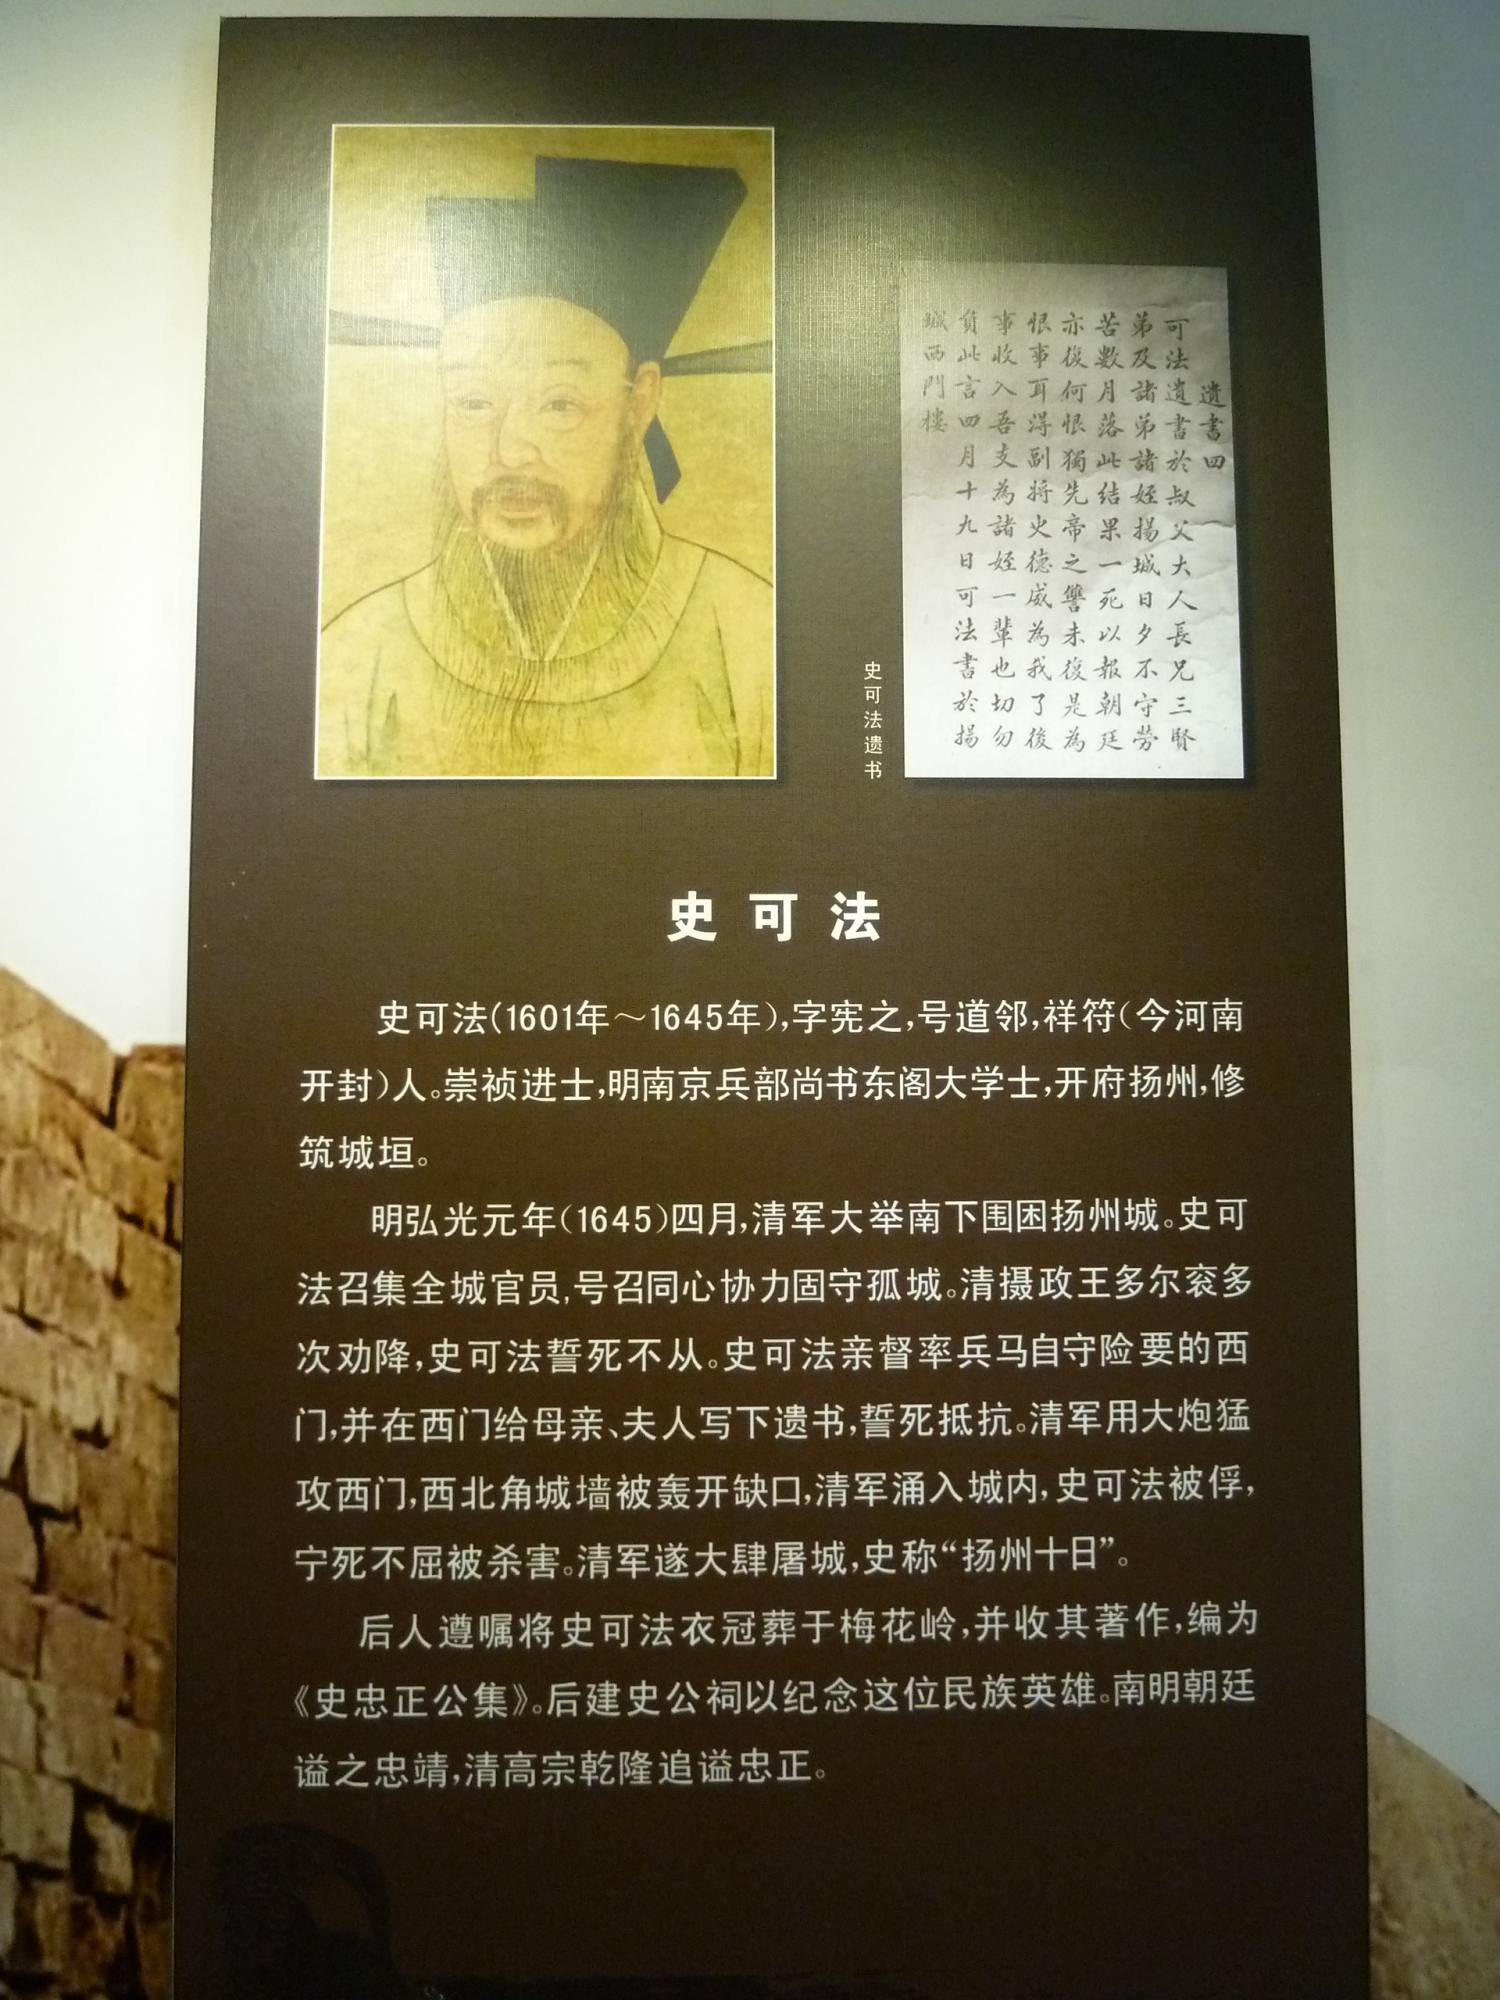 遺書四
可法遺書於叔父大人長兄三賢
弟及諸弟諸姪揚城日夕不守勞
苦數月落此結果一死以報朝廷
亦復何恨獨先帝之讐未復是為
恨事耳得副將史德威為我了後
事收入吾支為諸姪一輩也切勿
負此言四月十九日可法書於揚
城西門樓
史可法遗书
史可法
史可法(1601年～1645年),字宪之,号道邻,祥符(今河南
开封)人。崇祯进士,明南京兵部尚书东阁大学士,开府扬州,修
筑城垣。
明弘光元年(1645)四月,清军大举南下围困扬州城。史可
法召集全城官员,号召同心协力固守孤城。清摄政王多尔衮多
次劝降,史可法誓死不从。史可法亲督率兵马自守险要的西
门,并在西门给母亲、夫人写下遗书,誓死抵抗。清军用大炮猛
攻西门,西北角城墙被轰开缺口,清军涌入城内,史可法被俘,
宁死不屈被杀害。清军遂大肆屠城,史称“扬州十日”。
后人遵嘱将史可法衣冠葬于梅花岭,并收其著作,编为
《史忠正公集》。后建史公祠以纪念这位民族英雄。南明朝廷
谥之忠靖,清高宗乾隆追谥忠正。